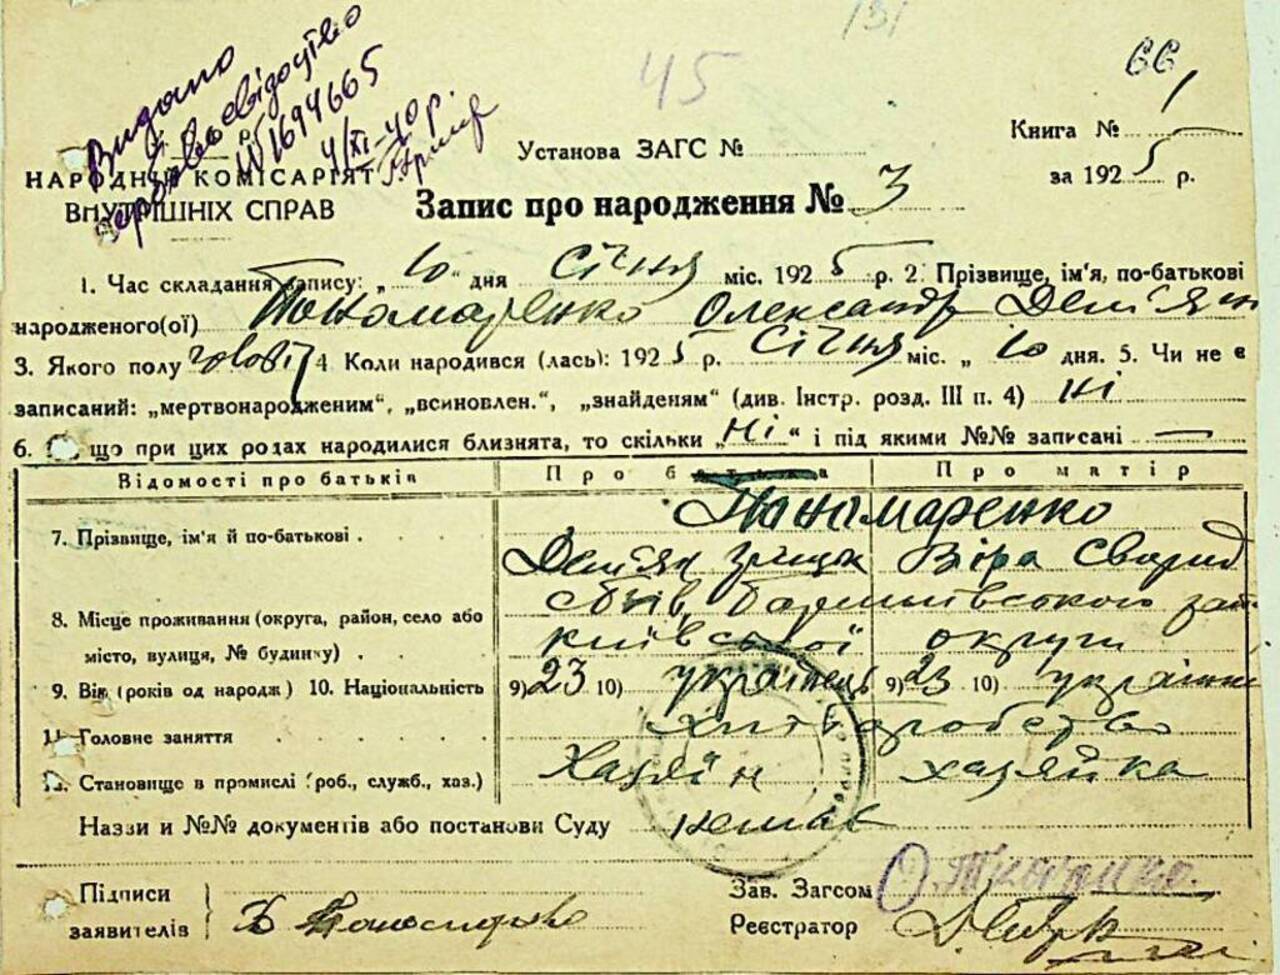 131
45
66
Видано
свідоцтво
№ 1694665
4/XI-40 р.
Книга №
за 1925 р.
Установа ЗАГС №
НАРОДНИЙ КОМІСАРІЯТ
ВНУТРІШНІХ СПРАВ
Запис про народження № 3
1. Час складання запису: „10“ дня Січня міс. 1925 р. 2. Прізвище, ім'я, по-батькові
народженого(ої) Пономаренко Олександр Дем'ян
3. Якого полу чолові 4. Коли народився (лась): 1925 р. Січня міс. „10 дня. 5. Чи не є
записаний: „мертвонародженим“, „всиновлен.“, „знайденям“ (див. Інстр. розд. III п. 4) ні
6. що при цих родах народилися близнята, то скільки „Ні“ і під якими №№ записані —
Відомості про батьків Про батька Про матір
Пономаренко
7. Прізвище, ім'я й по-батькові
Дем'ян Грицьк Віра Сварид
8. Місце проживання (округа, район, село або
місто, вулиця, № будинку)
київської округи
9. Вік (років од народж) 10. Національність 9) 23 10) українець 9) 23 10) українка
11. Головне заняття хліборобство
12. Становище в промислі (роб., служб., хаз.) Хазяїн хазяйка
Назви и №№ документів або постанови Суду немає
Підписи
заявителів
Зав. Загсом
Реєстратор